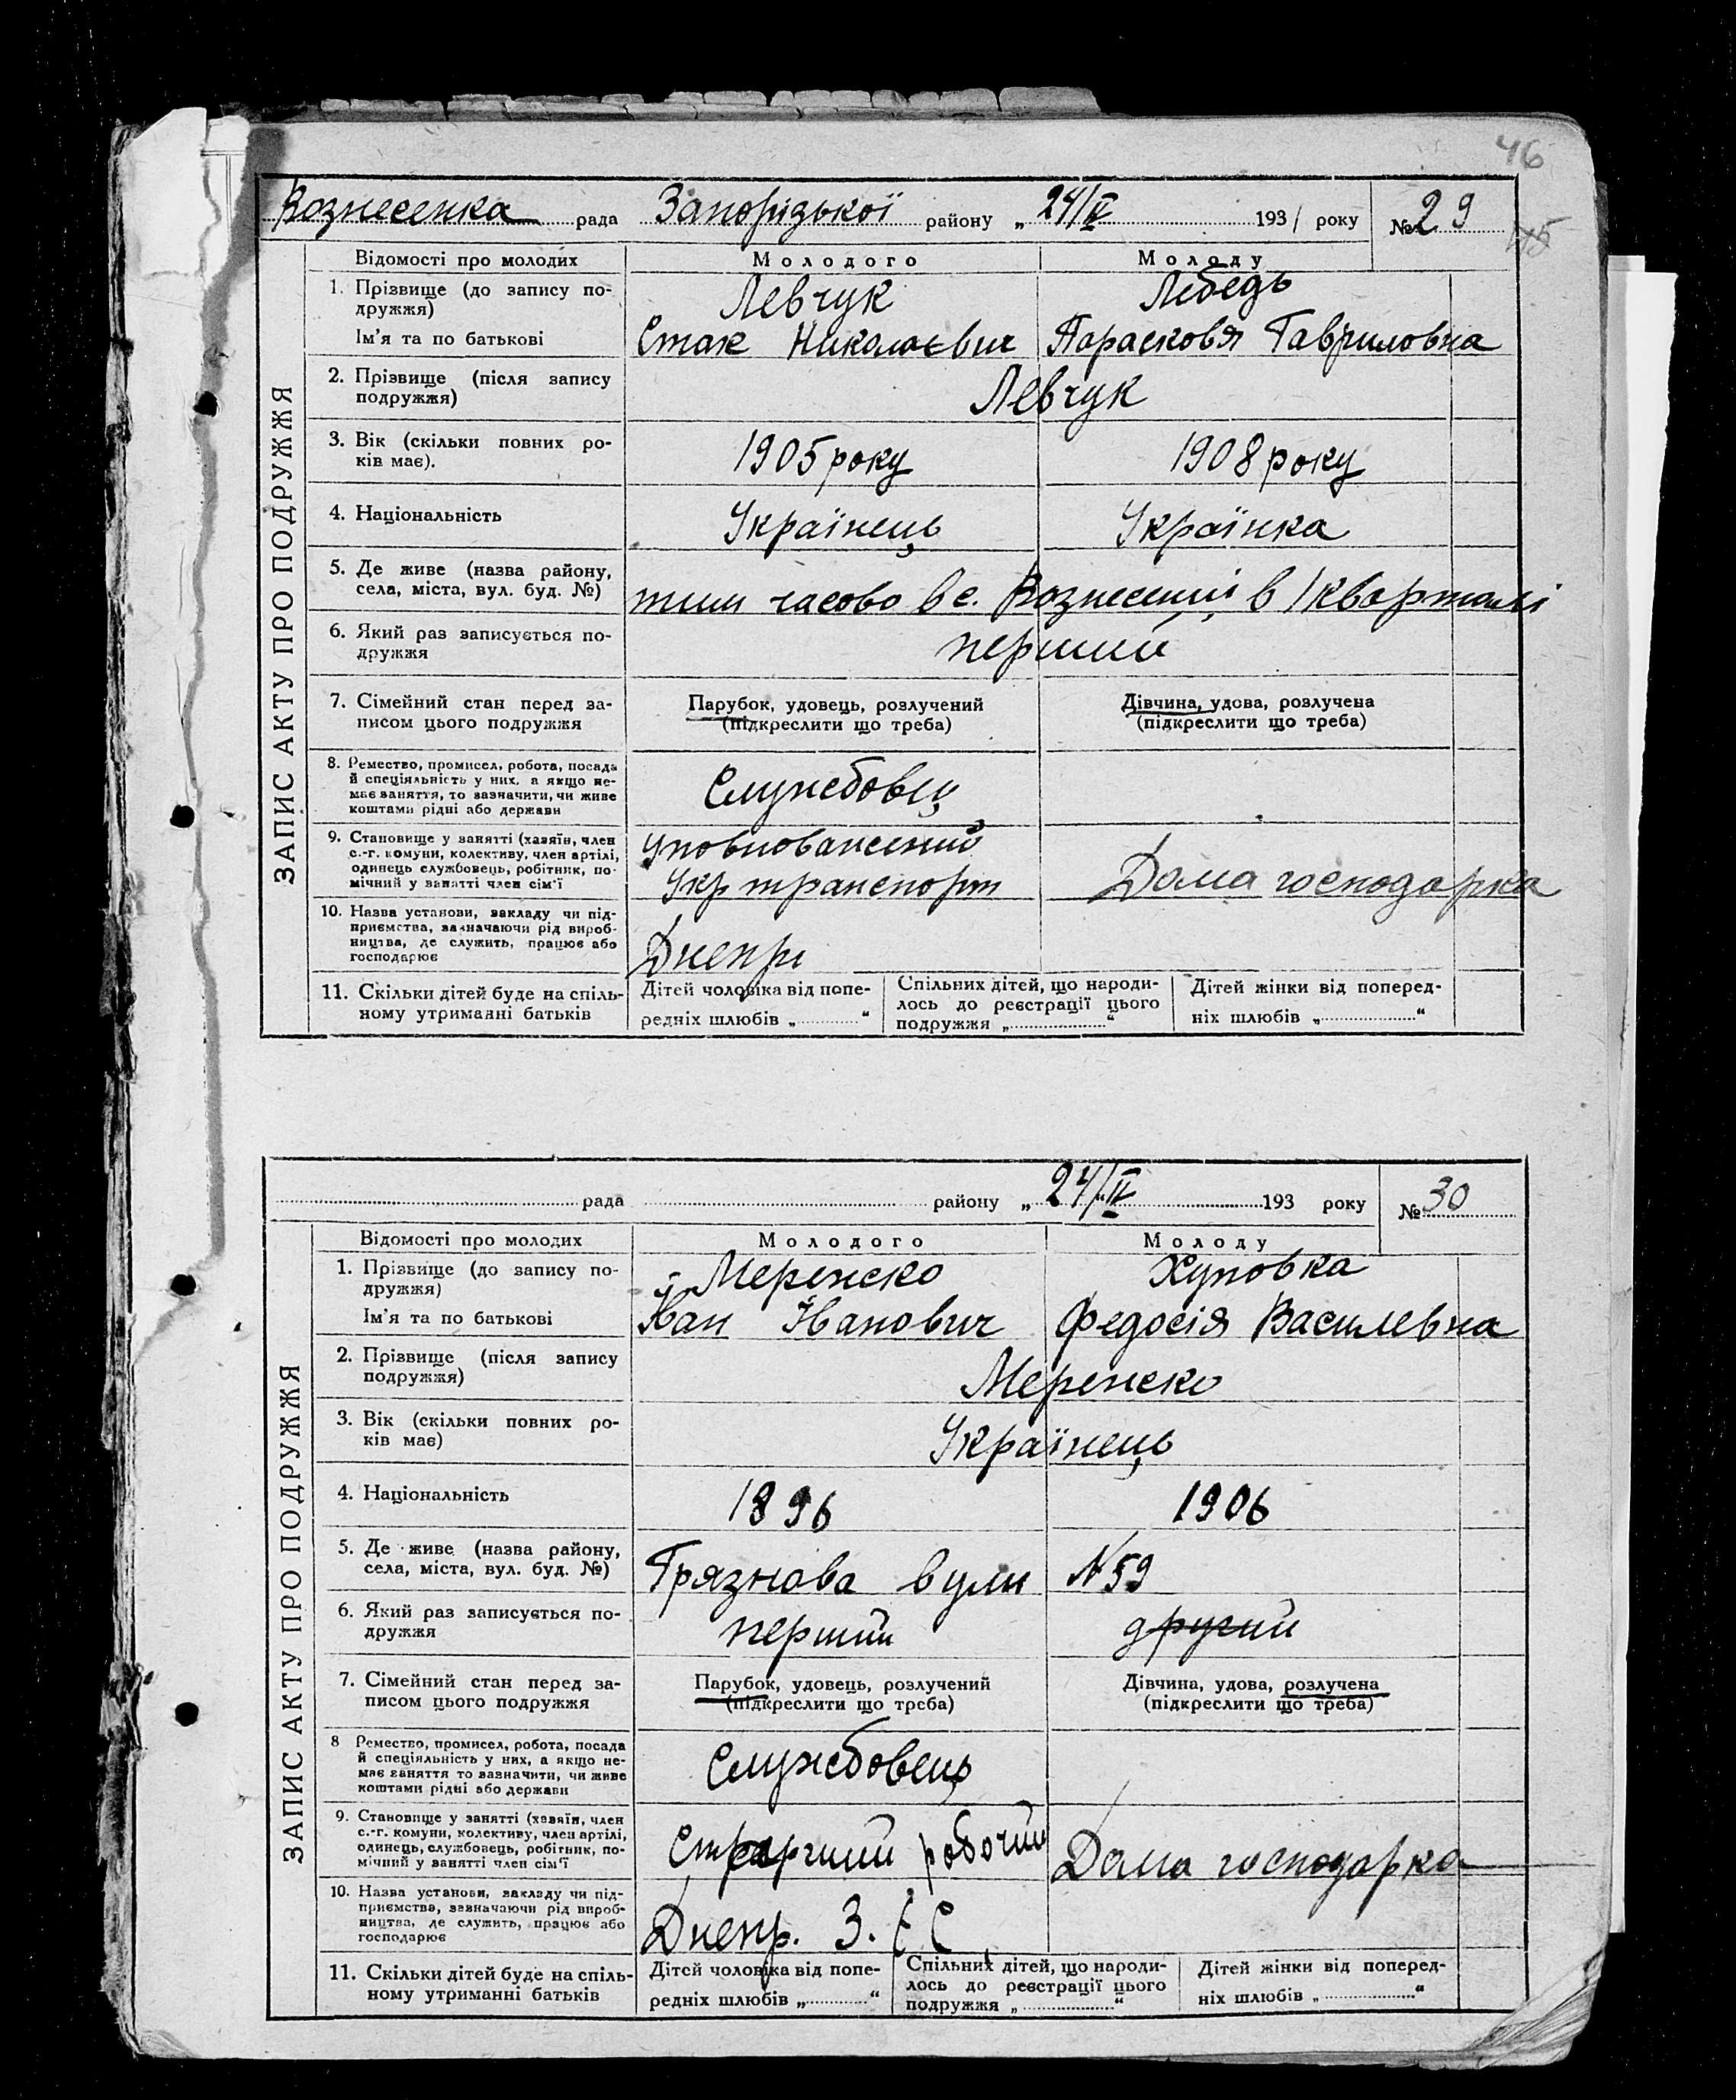 46
Вознесенка рада Запорізької району „ 24/IV 1931 року № 29
45
ЗАПИС АКТУ ПРО ПОДРУЖЖЯ
Відомості про молодих Молодого Молоду
1. Прізвище (до запису по-
дружжя) Левчук Лебедь
Ім'я та по батькові Николаєвич Парасковя Гавриловна
2. Прізвище (після запису
подружжя) Левчук
3. Вік (скільки повних ро-
ків має). 1905 року 1908 року
4. Національність Українець Українка
5. Де живе (назва району,
села, міста, вул. буд. №) тим часово в с. Вознесенці в 1 кварталі
6. Який раз записується по-
дружжя перший
7. Сімейний стан перед за-
писом цього подружжя
Парубок, удовець, розлучений
(підкреслити що треба)
Дівчина, удова, розлучена
(підкреслити що треба)
8. Ремество, промисел, робота, посада
й спеціяльність у них, а якщо не-
має заняття, то зазначити, чи живе
коштами рідні або держави
Службовец
9. Становище у занятті (хазяїн, член
с.-г. комуни, колективу, член артілі,
одинець службовець, робітник, по-
мічний у занятті член сім'ї
Уповноважений
Укртранспорт
Дома господарка
10. Назва установи, закладу чи під-
приємства, зазначаючи рід вироб-
ництва, де служить, працює або
господарює
11. Скільки дітей буде на спіль-
ному утриманні батьків
Дітей чоловіка від попе-
редніх шлюбів „ “
Спільних дітей, що народи-
лось до реєстрації цього
подружжя „ “
Дітей жінки від поперед-
ніх шлюбів „ “
рада району „ 24/IV 193 року № 30
ЗАПИС АКТУ ПРО ПОДРУЖЖЯ
Відомості про молодих Молодого Молоду
1. Прізвище (до запису по-
дружжя) Мережко Хуповка
Ім'я та по батькові Іван Іванович Федосія Василевна
2. Прізвище (після запису
подружжя) Мережко
3. Вік (скільки повних ро-
ків має) Українець
4. Національність 1896 1906
5. Де живе (назва району,
села, міста, вул. буд. №) Грязнова вули №59
6. Який раз записується по-
дружжя перший другий
7. Сімейний стан перед за-
писом цього подружжя
Парубок, удовець, розлучений
(підкреслити що треба)
Дівчина, удова, розлучена
(підкреслити що треба)
8 Ремество, промисел, робота, посада
й спеціяльність у них, а якщо не-
має заняття то зазначити, чи живе
коштами рідні або держави
Службовець
9. Становище у занятті (хазяїн, член
с.-г. комуни, колективу, член артілі,
одинець, службовець, робітник, по-
мічний у занятті член сім'ї
робочий
Дома господарка
10. Назва установи, закладу чи під-
приємства, зазначаючи рід вироб-
ництва, де служить, працює або
господарює
Днепр. З.
11. Скільки дітей буде на спіль-
ному утриманні батьків
Дітей чоловіка від попе-
редніх шлюбів „ “
Спільних дітей, що народи-
лось до реєстрації цього
подружжя „ “
Дітей жінки від поперед-
ніх шлюбів „ “